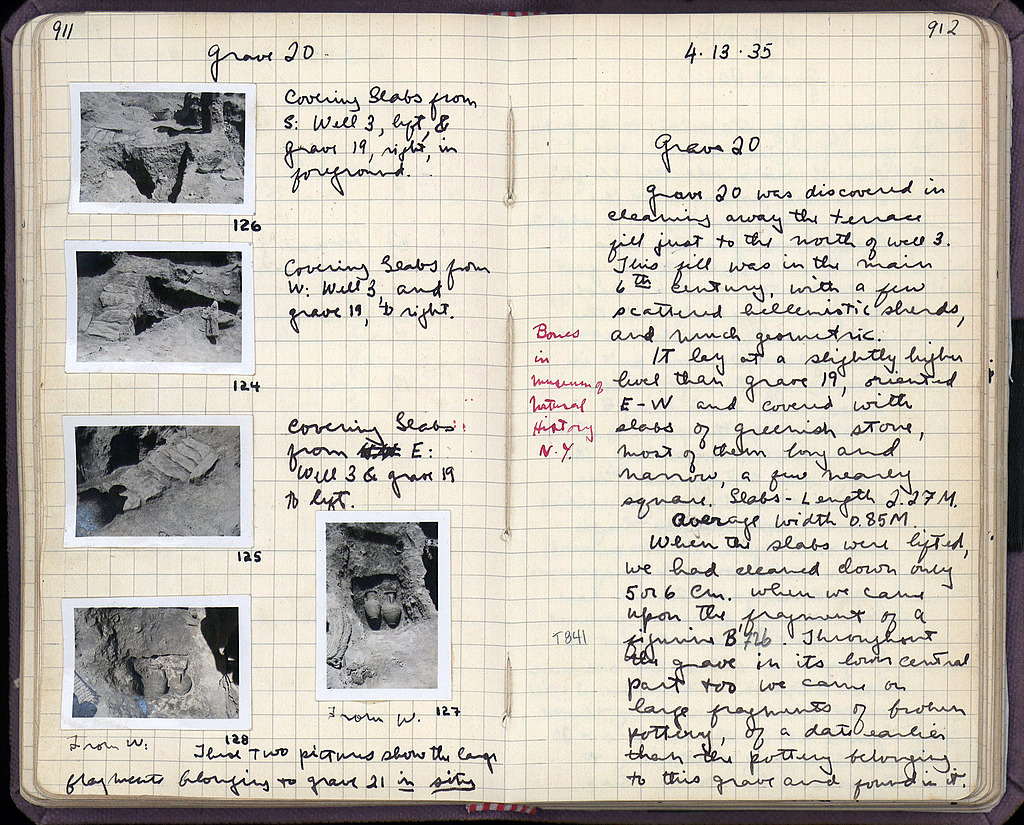 911
Grave 20
Covering Slabs from
S: Well 3, left, &
grave 19, right, in
foreground.
126
Covering Slabs from
W: Well 3, and
grave 19, to right.
124
Covering Slabs
from E:
Well 3 & grave 19
to left.
125
From W. 127
128
From W:
These two pictures show the large
fragments belonging to grave 21 in situ
912
4.13.35
Grave 20
Grave 20 was discovered in
cleaning away the terrace
fill just to the north of well 3.
This fill was in the main
6th century, with a few
scattered hellenistic sherds,
and much geometric.
It lay at a slightly higher
level than grave 19, oriented
E-W and covered with
slabs of greenish stone,
most of them long and
narrow, a few nearly
square. Slabs - Length 2.27 M.
average width 0.85 M.
When the slabs were lifted,
we had cleaned down only
5 or 6 cm. when we came
upon the fragment of a
figurine B'726. Throughout
the grave in its lower central
part too we came on
large fragments of broken
pottery, of a date earlier
than the pottery belonging
to this grave and found in it.
Bones
in
Museum of
Natural
History
N.Y.
T841